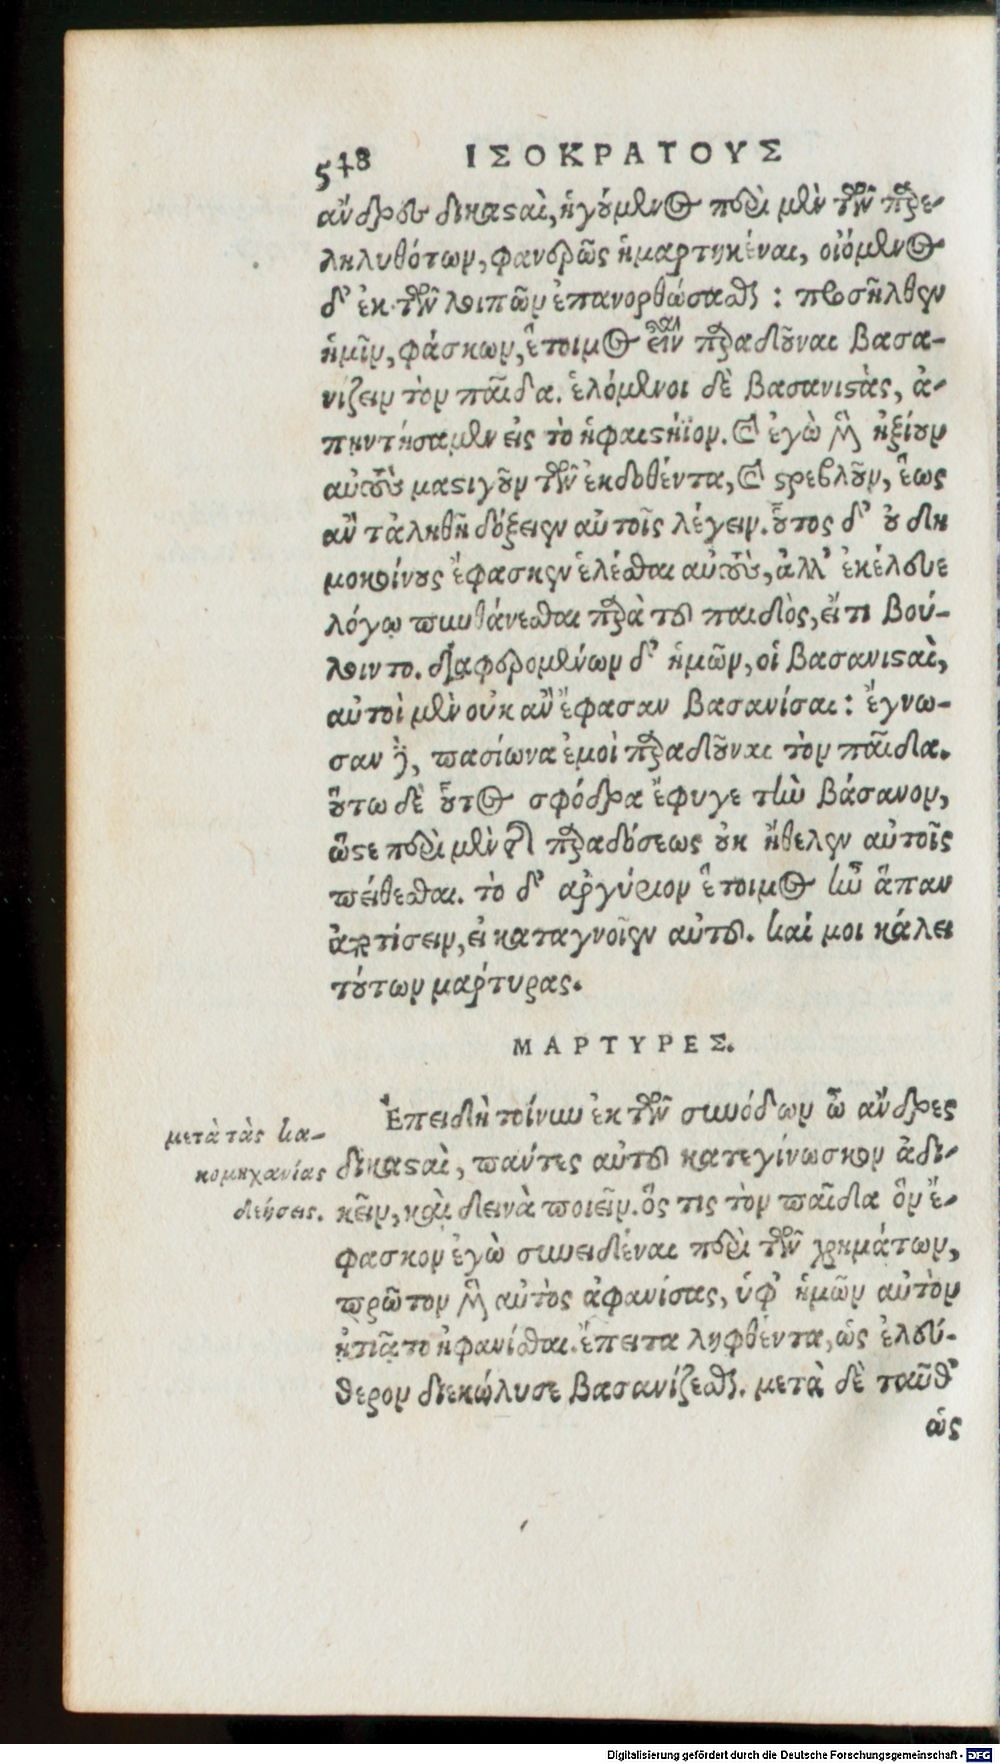 548 ΙΣΟΚΡΑΤΟΥΣ
ἄνδρες δικασαὶ, ἡγούμενος περὶ μὲν τῶν παρε-
ληλυθότων, φανερῶς ἡμαρτηκέναι, οἰόμενος
δ' ἐκ τῶν λοιπῶν ἐπανορθώσασθαι : προσῆλθεν
ἡμῖν, φάσκων, ἕτοιμος εἶναι παραδοῦναι βασα-
νίζειν τὸν παῖδα. ἑλόμενοι δὲ βασανιστὰς, ἀ-
πηντήσαμεν εἰς τὸ ἡφαιστήϊον. καὶ ἐγὼ μὲν ἠξίουν
αὐτοὺς μαστιγοῦν τὸν ἐκδοθέντα, καὶ στρεβλοῦν, ἕως
ἂν τἀληθῆ δόξειεν αὐτοῖς λέγειν. οὗτος δ' οὐ δη
μοκοίνους ἔφασκεν ἑλέσθαι αὐτοὺς, ἀλλ' ἐκέλευε
λόγῳ πυνθάνεσθαι παρὰ τοῦ παιδὸς, εἴ τι βού-
λοιντο. διαφερομένων δ' ἡμῶν, οἱ βασανισταὶ,
αὐτοὶ μὲν οὐκ ἂν ἔφασαν βασανίσαι : ἔγνω-
σαν δὲ, πασίωνα ἐμοὶ παραδοῦναι τὸν παῖδα.
οὕτω δὲ οὗτος σφόδρα ἔφυγε τὴν βάσανον,
ὥστε περὶ μὲν τῆς παραδόσεως οὐκ ἤθελεν αὐτοῖς
πείθεσθαι. τὸ δ' ἀργύριον ἕτοιμος ἦν ἅπαν
ἀρτίσειν, εἰ καταγνοῖεν αὐτοῦ. καί μοι κάλει
τούτων μάρτυρας.
ΜΑΡΤΥΡΕΣ.
Ἐπειδὴ τοίνυν ἐκ τῶν συνόδων ὦ ἄνδρες
μετὰ τὰς κα-
κομηχανίας
διήσεις.
δικασταὶ, πάντες αὐτοῦ κατεγίνωσκον ἀδι-
κεῖν, καὶ δεινὰ ποιεῖν. ὅς τις τὸν παῖδα ὃν ἔ-
φασκον ἐγὼ συνειδέναι περὶ τῶν χρημάτων,
πρῶτον μὲν αὐτὸς ἀφανίσας, ὑφ' ἡμῶν αὐτὸν
ᾐτιᾶτο ἠφανίσθαι. ἔπειτα ληφθέντα, ὡς ἐλεύ-
θερον διεκώλυσε βασανίζεσθαι. μετὰ δὲ ταῦθ'
ὡς
Digitalisierung gefördert durch die Deutsche Forschungsgemeinschaft - DFG